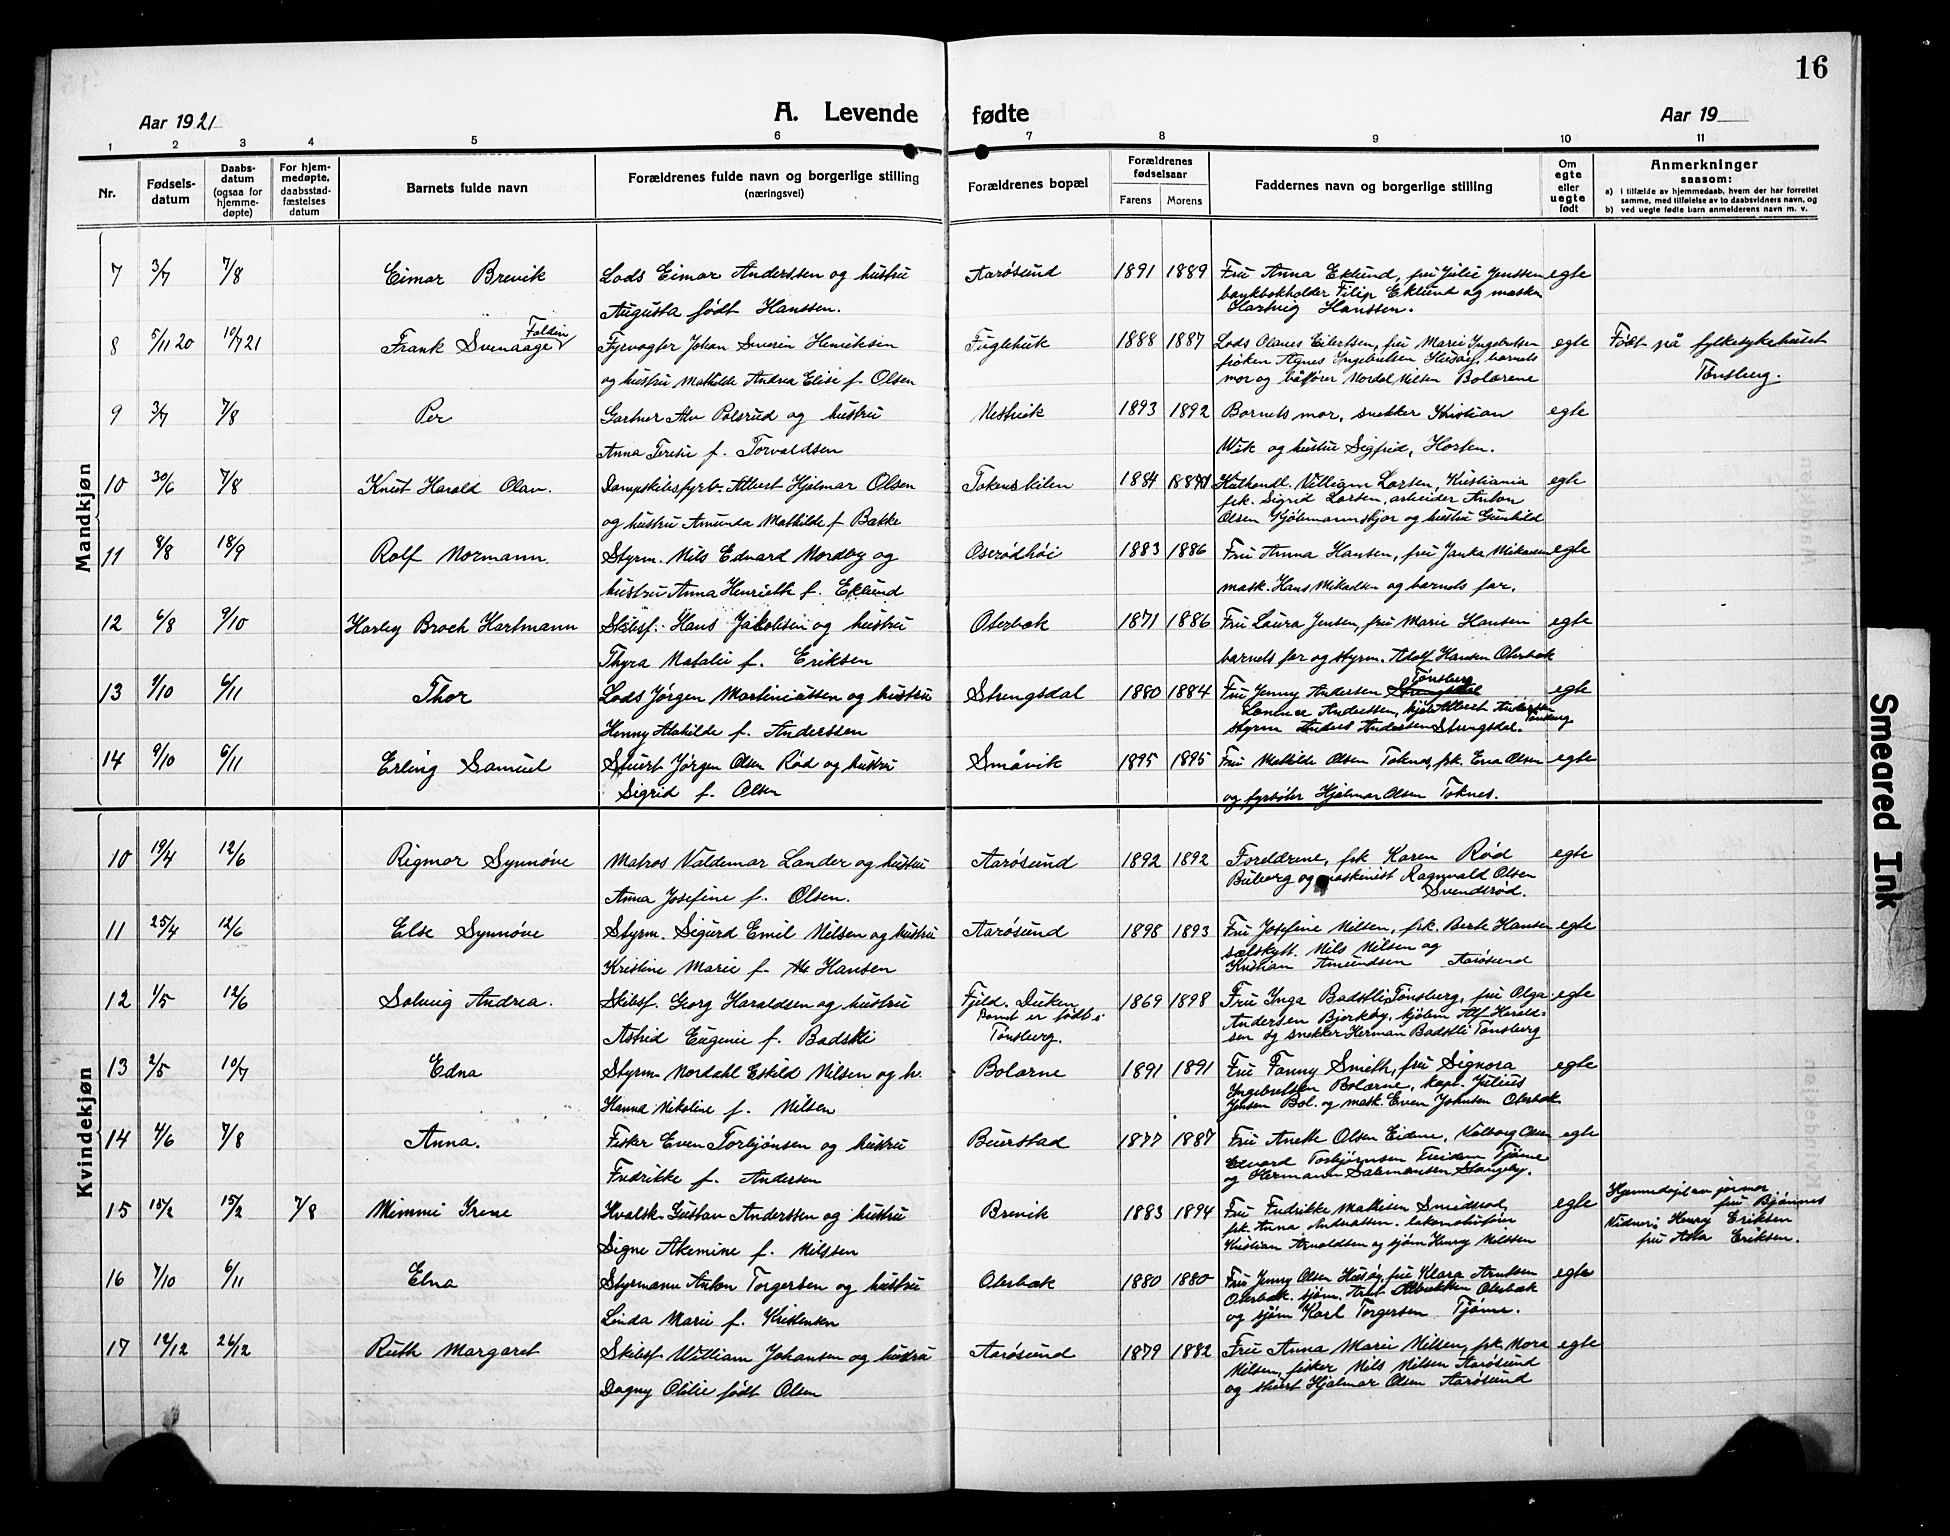 16
Aar 1921
A. Levende fødte
Aar 19
1 2 3 4 5 6 7 8 9 10 11
Nr.
Fødsels-
datum
Daabs-
datum
(ogsaa for
hjemme-
døpte)
For hjem-
medøpte,
daabsstad-
fæstelses
datum
Barnets fulde navn
Forældrenes fulde navn og borgerlige stilling
(næringsvei)
Forældrenes bopæl
Forældrenes
fødselsaar
Farens Morens
Faddernes navn og borgerlige stilling
Om
egte
eller
uegte
født
Anmerkninger
saasom:
a) i tilfælde av hjemmedaab, hvem der har forrettet
samme, med tilføielse av to daabsvidners navn, og
b) ved uegte fødte barn anmelderens navn m. v.
Mandkjøn
7 3/7 7/8 Eimar Brevik Lods Eimar Anderssen og hustru Aarøsund 1891 1889 Fru Anna Eklund, fru Julie Jenssen egte
bankbokholder Filip Eklund og maskn
Augusta født Hanssen. Hartvig Hanssen.
8 5/11 20 10/7 21 Frank Svenaage Foldin Fyrvogter Johan Severin Henriksen Fuglehuk 1888 1887 Lods Olanes Eilertsen, fru Marie Ingebretsen egte Født på fylkesykehuset
frøken Agnes Ingebretsen Husøy, barnets
og hustru Mathilde Andrea Elise f. Olsen mor og båtfører Nordal Nilsen Bolærene Tønsberg.
9 3/7 7/8 Per Gartner Alv Polsrud og hustru Nesthvik 1893 1892 Barnets mor, snekker Kristian egte
Anna Terese f. Torvaldsen Wik og hustru Sigfrid, Horten.
10 30/6 7/8 Knut Harald Olav. Dampskibsfyrb. Albert Hjalmar Olsen Tokenskilen 1884 Kulhandl. William Larsen, Kristiania egte
frk. Sigrid Larsen, arbeider Anton
og hustru Amunda Mathilde f Bakke Olsen Kjøbmannskjær og hustru Gunhild
11 8/8 18/9 Rolf Normann Styrm. Nils Edvard Nordby og Oserødhøi 1883 1886 Fru Anna Hansen, fru Janka Mikaelsen egte
hustru Anna Henriette f. Eklund mask. Hans Mikaelsen og barnets far.
12 6/8 9/10 Harley Broch Hartmann Skibsf. Hans Jakobsen og hustru Oterbæk 1871 1886 Fru Laura Jensen, fru Marie Hansen egte
Thyra Natalie f. Eriksen barnets far og styrm. Adolf Hansen Oterbæk
13 9/10 6/11 Thor Lods Jørgen Martiniussen og hustru Strengsdal 1880 1884 Fru Jenny Andersen Strengsdal Tønsberg egte
Anderssen, Albert Anderssen Tønsberg
Henny Mathilde f. Anderssen styrm Anders Andersen Strengsdal.
14 9/10 6/11 Erling Samuel Stuert Jørgen Olsen Rød og hustru Småvik 1895 1895 Fru Mathilde Olsen Toknes, frk. Eva Olsen egte
Sigrid f. Olsen og fyrbøter Hjalmar Olsen Toknes.
Kvindekjøn
10 19/4 12/6 Rigmor Synnøve Matros Valdemar Lander og hustru Aarøsund 1892 1892 Foreldrene, frk Karen Rød egte
Buberg og maskinist Ragnvald Olsen
Anna Josefine f. Olsen. Svendsrød.
11 25/4 12/6 Else Synnøve Styrm. Sigurd Emil Nilsen og hustru Aarøsund 1898 1893 Fru Josefine Nilsen, frk. Berte Hansen egte
sælskytt. Nils Nilsen og
Kristine Marie f. Hansen Kristian Amundsen Aarøsund
12 1/5 12/6 Solveig Andrea. Skibsf. Georg Haraldsen og hustru Fjeld. Duken 1869 1898 Fru Inga Badstli Tønsberg, fru Olga egte
Barnet er født i Andersen Bjerkøy, kjøbm Alf Herald=
Astrid Eugenie f. Badstli Tønsberg. sen og snekker Herman Badstli Tønsberg
13 2/5 10/7 Edna Styrm. Nordahl Eskild Nilsen og h. Bolærne 1891 1891 Fru Fanny Smith, fru Signora egte
Ingebretsen Bolærne, kapt. Julius
Hanna Nikoline f. Nilsen Jensen Bol. og mask. Even Johnsen Oterbæk
14 4/6 7/8 Anna. Fisker Even Torbjønsen og hustru Buerstad 1877 1887 Fru Anette Olsen Eidene, Valborg Olsen egte
Edvard Torbjørnsen Treidene Tjøme
Fredrikke f. Andersen og Hermann Salomonsen Stangeby.
15 15/2 15/2 7/8 Mimmi Irene Hvalsk. Gustav Anderssen og hustru Brevik 1883 1894 Fru Fredrikke Mathisen Smidsrød, egte Hjemmedøpt av jormor
frk. Anna Andreassen. lokomotivfører fru Bjønnes
Signe Akemine f. Nilssen Kristian Arnoldsen og sjøm Henry Nilssen Vidner: Henry Eriksen
fru Asta Eriksen.
16 7/10 6/11 Elna Styrmann Anton Torgersen og hustru Oterbæk 1880 1880 Fru Jenny Olsen Husøy, fru Klara Arntsen egte
Oterbæk. sjøm. Oterbæk
Linda Marie f. Kristensen og sjøm Karl Torgersen Tjøme.
17 12/12 26/12 Ruth Margaret Skibsf. William Johansen og hustru Aarøsund 1879 1882 Fru Anna Marie Nilsen, frk Mora egte
Nilsen, fisker Nils Nilsen Aarøsund
Dagny Otilie født Olsen og stuert Hjalmar Olsen Aarøsund
Smeared Ink